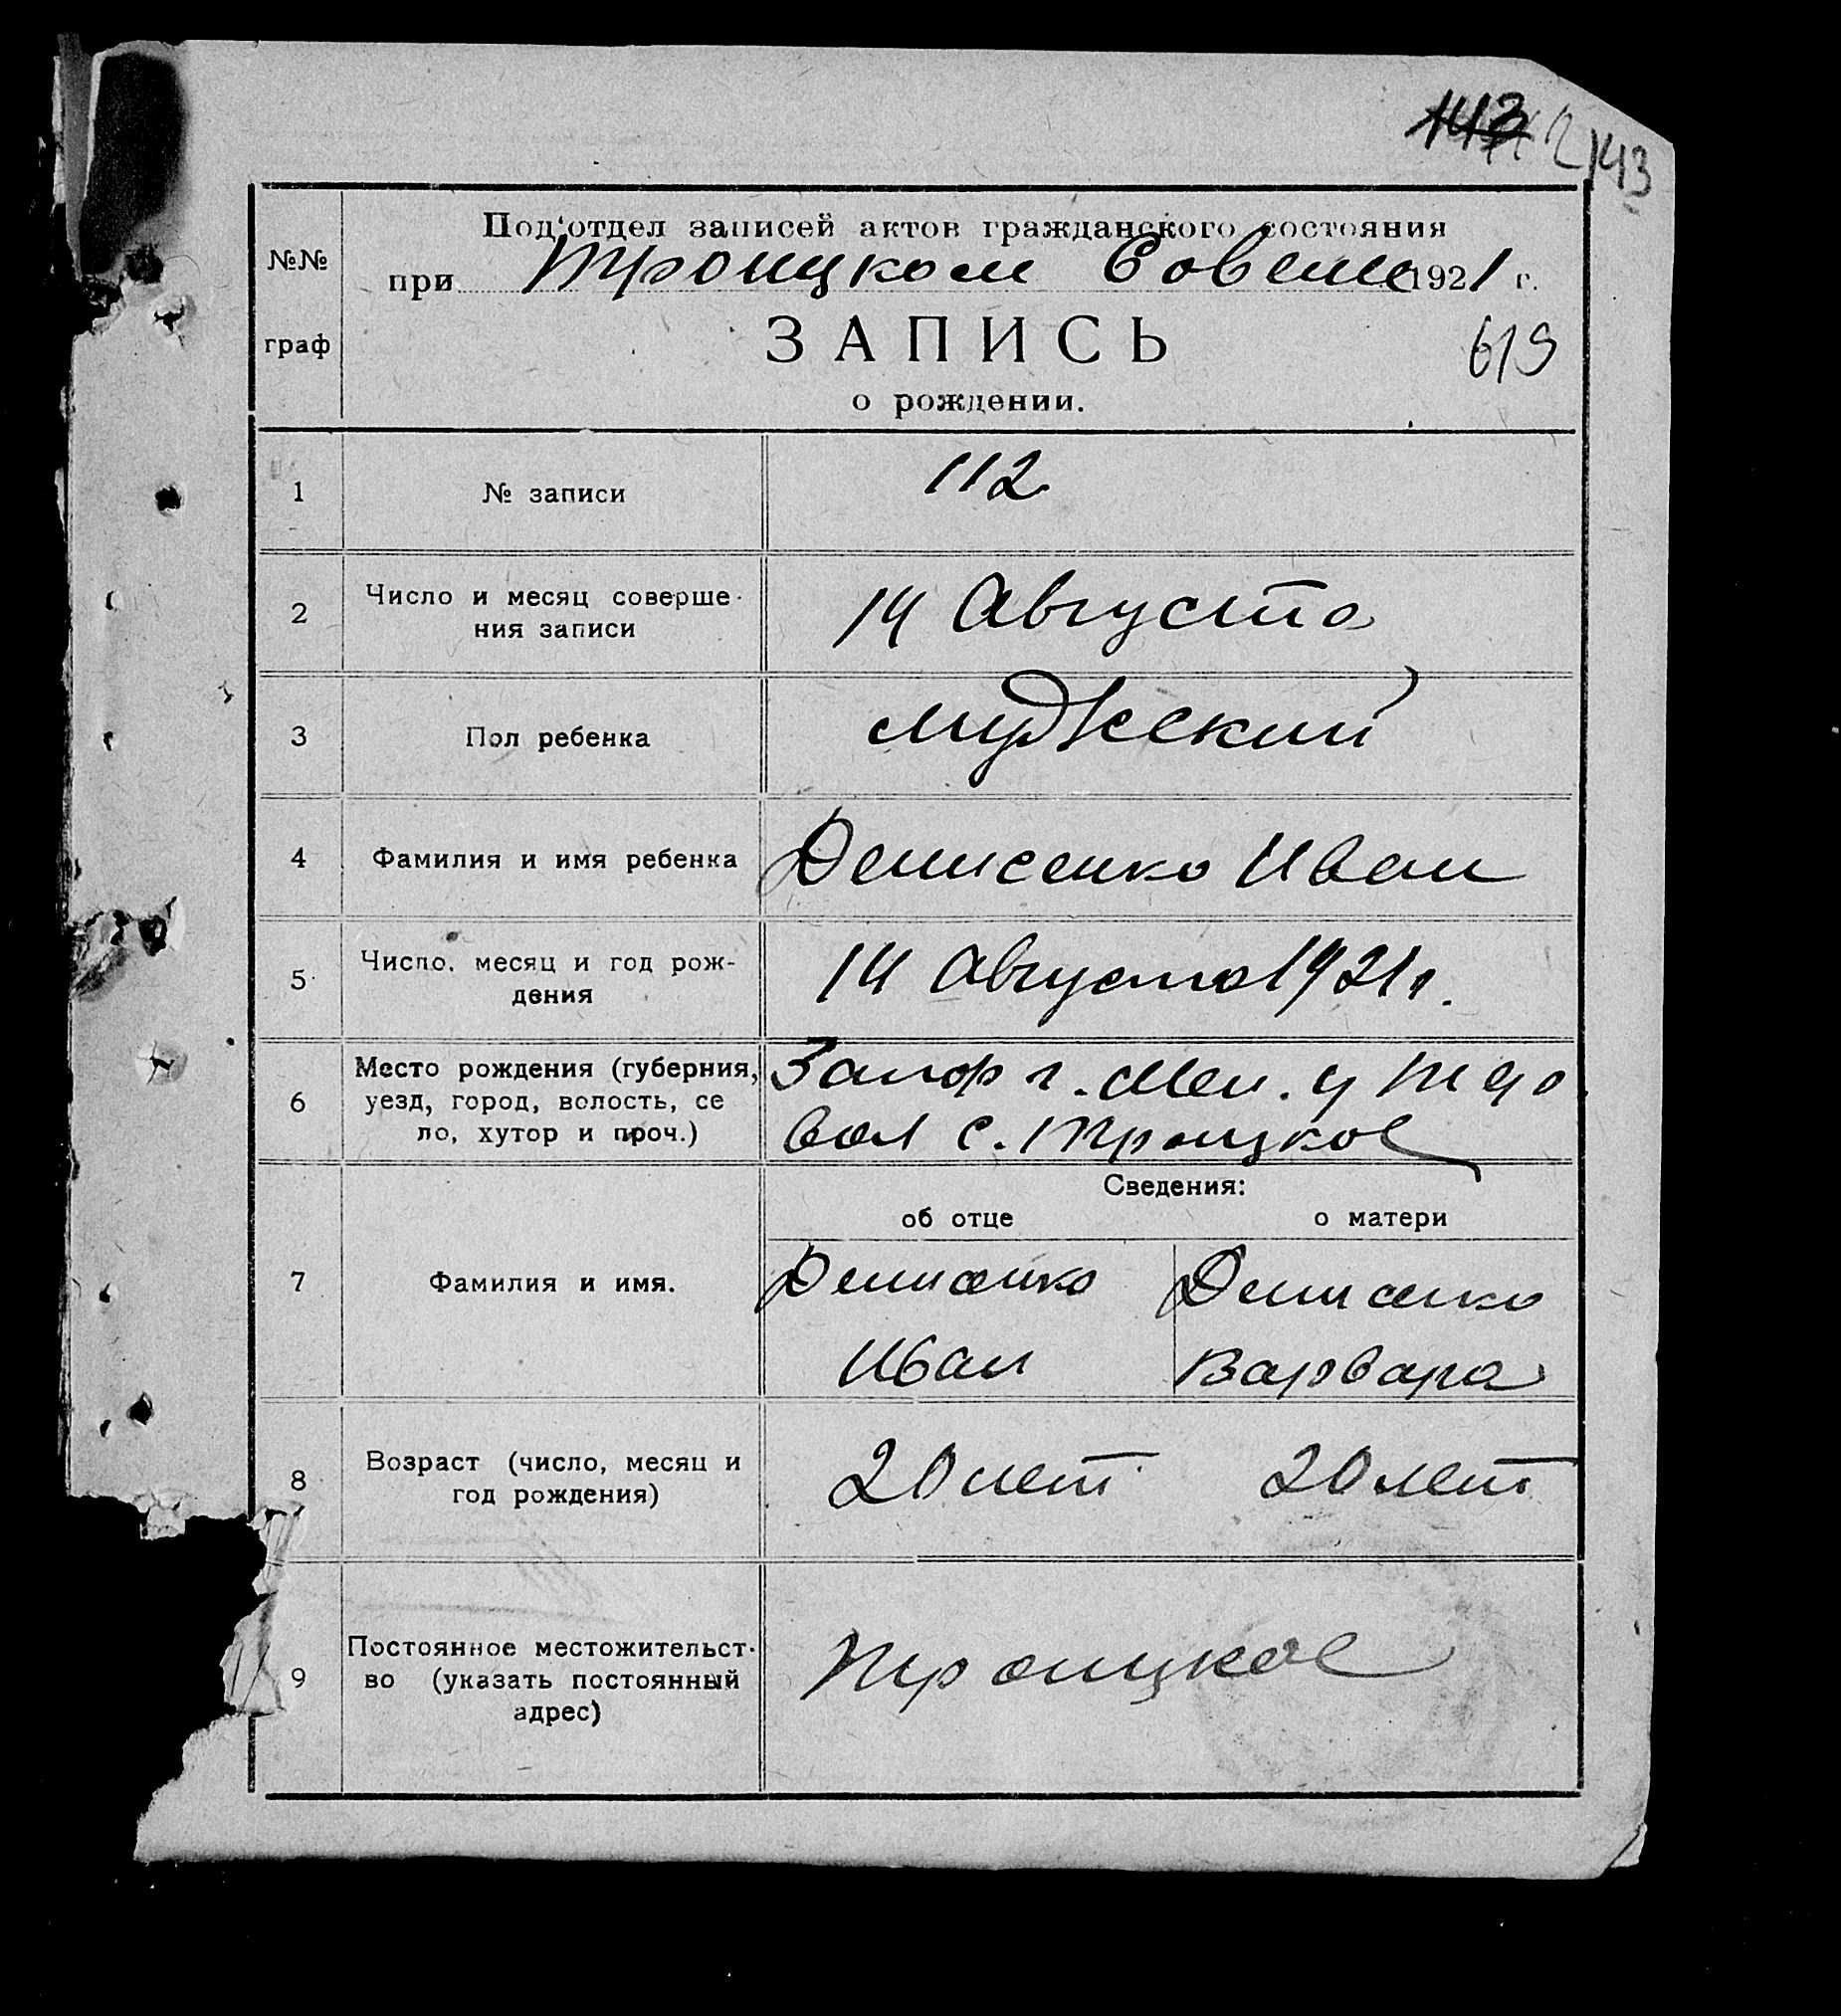 143
143
Под'отдел записей актов гражданского состояния
№№
при Троицком Совете 1921 г.
граф
ЗАПИСЬ
619
о рождении.
1 № записи 112
2 Число и месяц соверше-
ния записи 14 Августа
3 Пол ребенка мужеский
4 Фамилия и имя ребенка Денисенко Иван
5 Число, месяц и год рож-
дения 14 Августа 1921 г.
6 Место рождения (губерния,
уезд, город, волость, се
ло, хутор и проч.)
Запор г. Мел. у
вол с. Троицкое
Сведения:
об отце о матери
7 Фамилия и имя.
Денисенко Денисенко
Иван Варвара
8 Возраст (число, месяц и
год рождения) 20 лет 20 лет
9 Постоянное местожительст-
во (указать постоянный
адрес) Троицкое